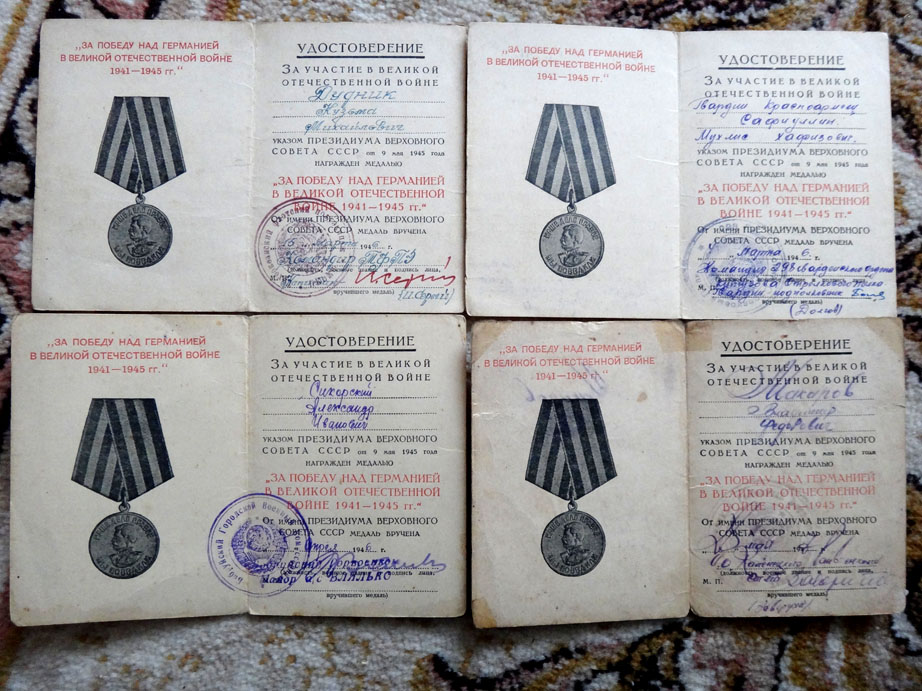 „ЗА ПОБЕДУ НАД ГЕРМАНИЕЙ
В ВЕЛИКОЙ ОТЕЧЕСТВЕННОЙ ВОЙНЕ
1941—1945 гг.“
УДОСТОВЕРЕНИЕ
ЗА УЧАСТИЕ В ВЕЛИКОЙ
ОТЕЧЕСТВЕННОЙ ВОЙНЕ
Дудник
Кузьма
Михайлович
УКАЗОМ ПРЕЗИДИУМА ВЕРХОВНОГО
СОВЕТА СССР от 9 мая 1945 года
НАГРАЖДЕН МЕДАЛЬЮ
„ЗА ПОБЕДУ НАД ГЕРМАНИЕЙ
В ВЕЛИКОЙ ОТЕЧЕСТВЕННОЙ
ВОЙНЕ 1941—1945 гг.“
От имени ПРЕЗИДИУМА ВЕРХОВНОГО
СОВЕТА СССР МЕДАЛЬ ВРУЧЕНА
марта 1946 г.
Командир
вручившего медаль)
„ЗА ПОБЕДУ НАД ГЕРМАНИЕЙ
В ВЕЛИКОЙ ОТЕЧЕСТВЕННОЙ ВОЙНЕ
1941—1945 гг.“
УДОСТОВЕРЕНИЕ
ЗА УЧАСТИЕ В ВЕЛИКОЙ
ОТЕЧЕСТВЕННОЙ ВОЙНЕ
Гвардии Красноармеец
Сафиуллин
Мухлис Хафизович
УКАЗОМ ПРЕЗИДИУМА ВЕРХОВНОГО
СОВЕТА СССР от 9 мая 1945 года
НАГРАЖДЕН МЕДАЛЬЮ
„ЗА ПОБЕДУ НАД ГЕРМАНИЕЙ
В ВЕЛИКОЙ ОТЕЧЕСТВЕННОЙ
ВОЙНЕ 1941—1945 гг.“
От имени ПРЕЗИДИУМА ВЕРХОВНОГО
СОВЕТА СССР МЕДАЛЬ ВРУЧЕНА
Марта 6 г.
Командир 293 гвардейского ордена
Кутузова Стрелкового полка
Гвардии подполковник
вручившего медаль)
(Долгов)
„ЗА ПОБЕДУ НАД ГЕРМАНИЕЙ
В ВЕЛИКОЙ ОТЕЧЕСТВЕННОЙ ВОЙНЕ
1941—1945 гг.“
УДОСТОВЕРЕНИЕ
ЗА УЧАСТИЕ В ВЕЛИКОЙ
ОТЕЧЕСТВЕННОЙ ВОЙНЕ
Сикорский
Александр
Иванович
УКАЗОМ ПРЕЗИДИУМА ВЕРХОВНОГО
СОВЕТА СССР от 9 мая 1945 года
НАГРАЖДЕН МЕДАЛЬЮ
„ЗА ПОБЕДУ НАД ГЕРМАНИЕЙ
В ВЕЛИКОЙ ОТЕЧЕСТВЕННОЙ
ВОЙНЕ 1941—1945 гг.“
От имени ПРЕЗИДИУМА ВЕРХОВНОГО
СОВЕТА СССР МЕДАЛЬ ВРУЧЕНА
апрел 1946 г.
майор
вручившего медаль)
„ЗА ПОБЕДУ НАД ГЕРМАНИЕЙ
В ВЕЛИКОЙ ОТЕЧЕСТВЕННОЙ ВОЙНЕ
1941—1945 гг.“
УДОСТОВЕРЕНИЕ
ЗА УЧАСТИЕ В ВЕЛИКОЙ
ОТЕЧЕСТВЕННОЙ ВОЙНЕ
Макаров
Владимир
Федорович
УКАЗОМ ПРЕЗИДИУМА ВЕРХОВНОГО
СОВЕТА СССР от 9 мая 1945 года
НАГРАЖДЕН МЕДАЛЬЮ
„ЗА ПОБЕДУ НАД ГЕРМАНИЕЙ
В ВЕЛИКОЙ ОТЕЧЕСТВЕННОЙ
ВОЙНЕ 1941—1945 гг.“
От имени ПРЕЗИДИУМА ВЕРХОВНОГО
СОВЕТА СССР МЕДАЛЬ ВРУЧЕНА
мая
М. П.
вручившего медаль)